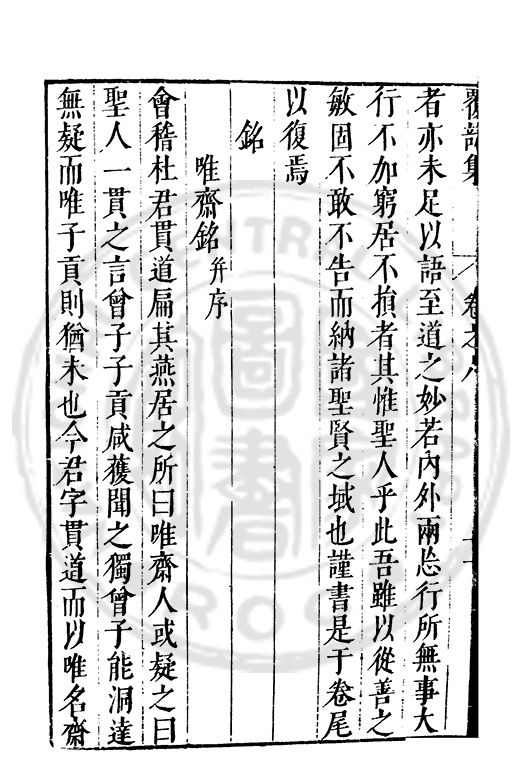 覆瓿集
卷之八
者亦未足以語至道之妙若內外兩忘行所無事大
行不加窮居不損者其惟聖人乎此吾雖以從善之
敏固不敢不告而納諸聖賢之域也謹書是于卷尾
以復焉
銘
唯齋銘并序
會稽杜君貫道扁其燕居之所曰唯齋人或疑之曰
聖人一貫之言曾子子貢咸獲聞之獨曾子能洞達
無疑而唯子貢則猶未也今君字貫道而以唯名齋